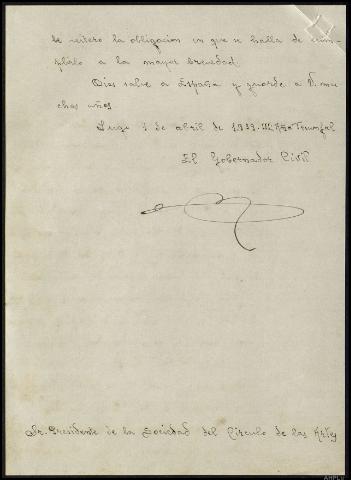 le reitero la obligacion en que se halla de cum-
plirlo a la mayor brevedad.
Dios salve a España y guarde a V. mu-
chos años.
Lugo 1 de abril de 1939. III Año Triunfal
El Gobernador Civil
Sr. Presidente de la Sociedad del Circulo de las Artes
AHPLU